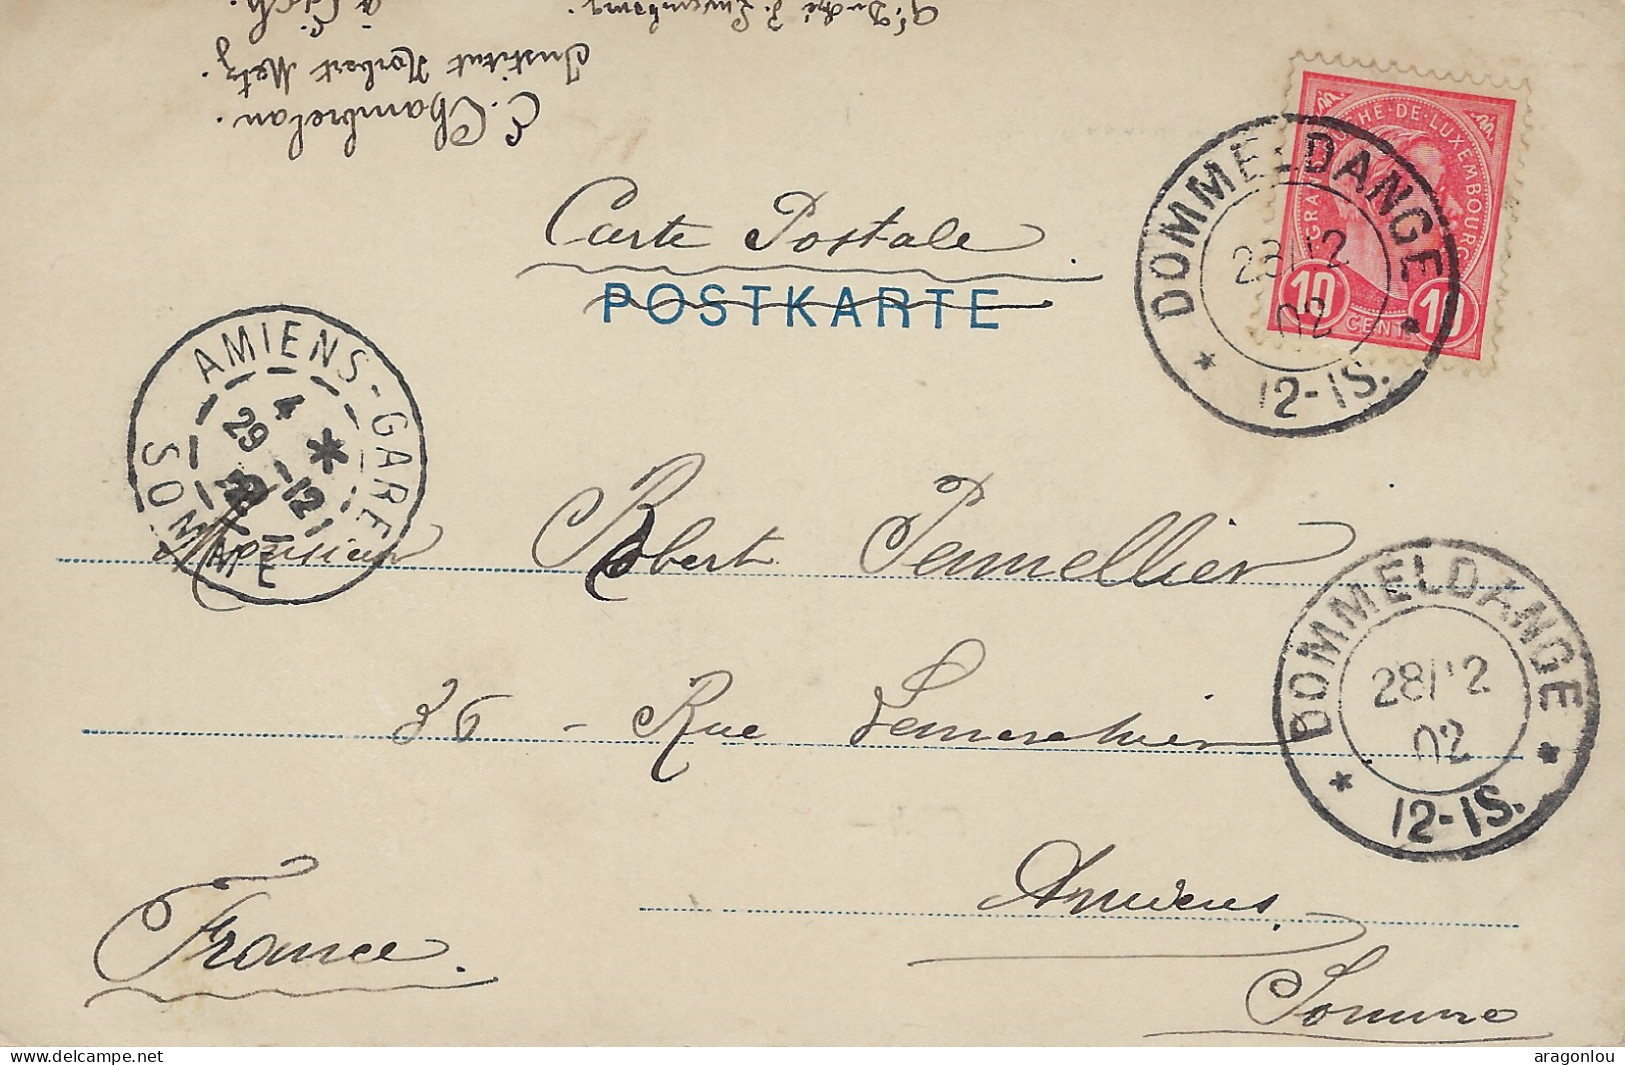 E. Chambrelan.
Institut Norbert Metz.
à Esch.
Gd Duché d. Luxembourg.
GRAND DUCHE·DE·LUXEMBOURG
10 CENT. 10
DOMMELDANGE
28/12
02
12-1S.
Carte Postale.
POSTKARTE
AMIENS-GARE
4 *
29 -12
SOMME
Monsieur Robert Pennellier
DOMMELDANGE
28/12
02
12-1S.
36 - Rue Lemerchier
Amiens.
France.
Somme
delcampe.net
aragonlou